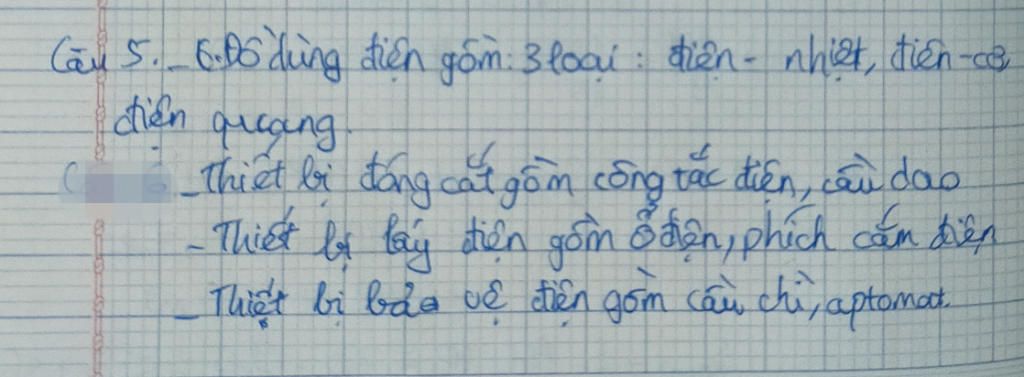 Câu 5. - 6. Đồ dùng điện gồm: 3 loại: điện - nhiệt, điện - cơ,
điện quang.
- Thiết bị đóng cắt gồm công tắc điện, cầu dao
- Thiết bị lấy điện gồm ổ điện, phích cắm điện
- Thiết bị bảo vệ điện gồm cầu chì, aptomat.